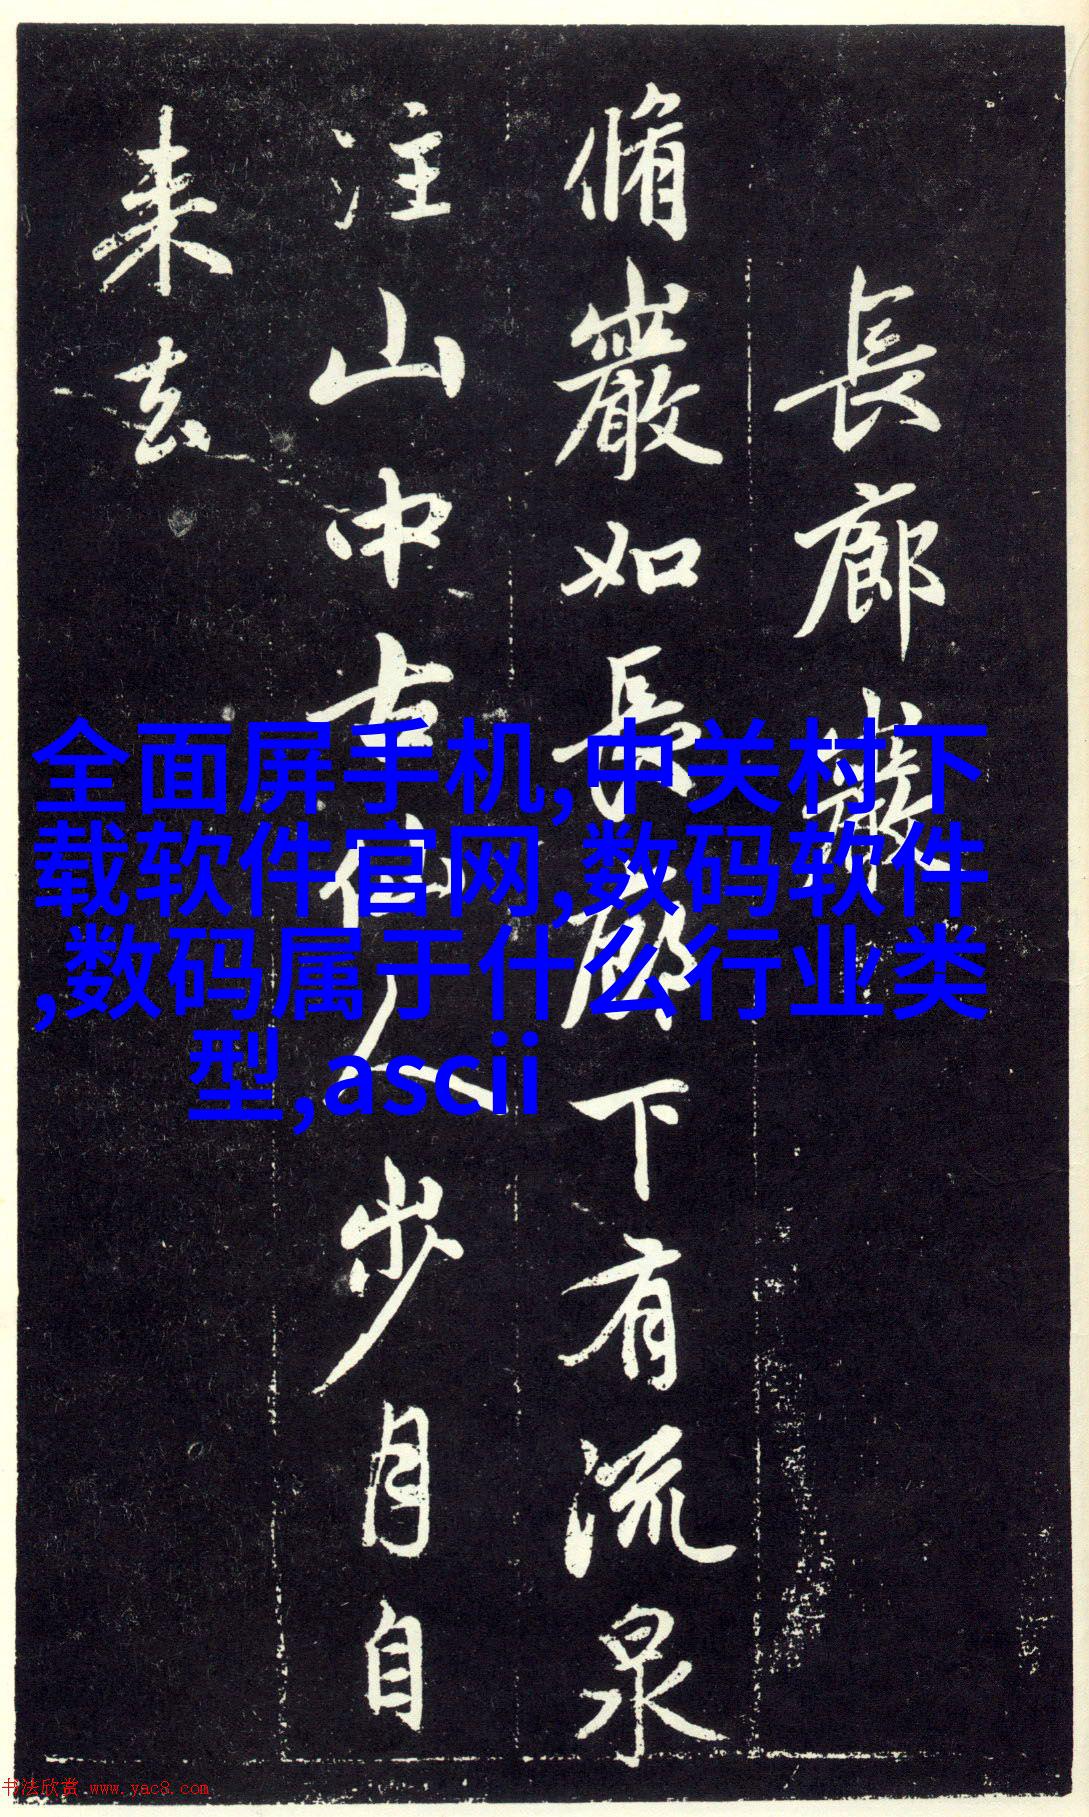 長廊巖
脩巖如長廊下有流泉
注山中古仙人步月自
来去
全面屏手机,中关村下
载软件官网,数码软件
,数码属于什么行业类
型,ascii
书法欣赏 www.yac8.com